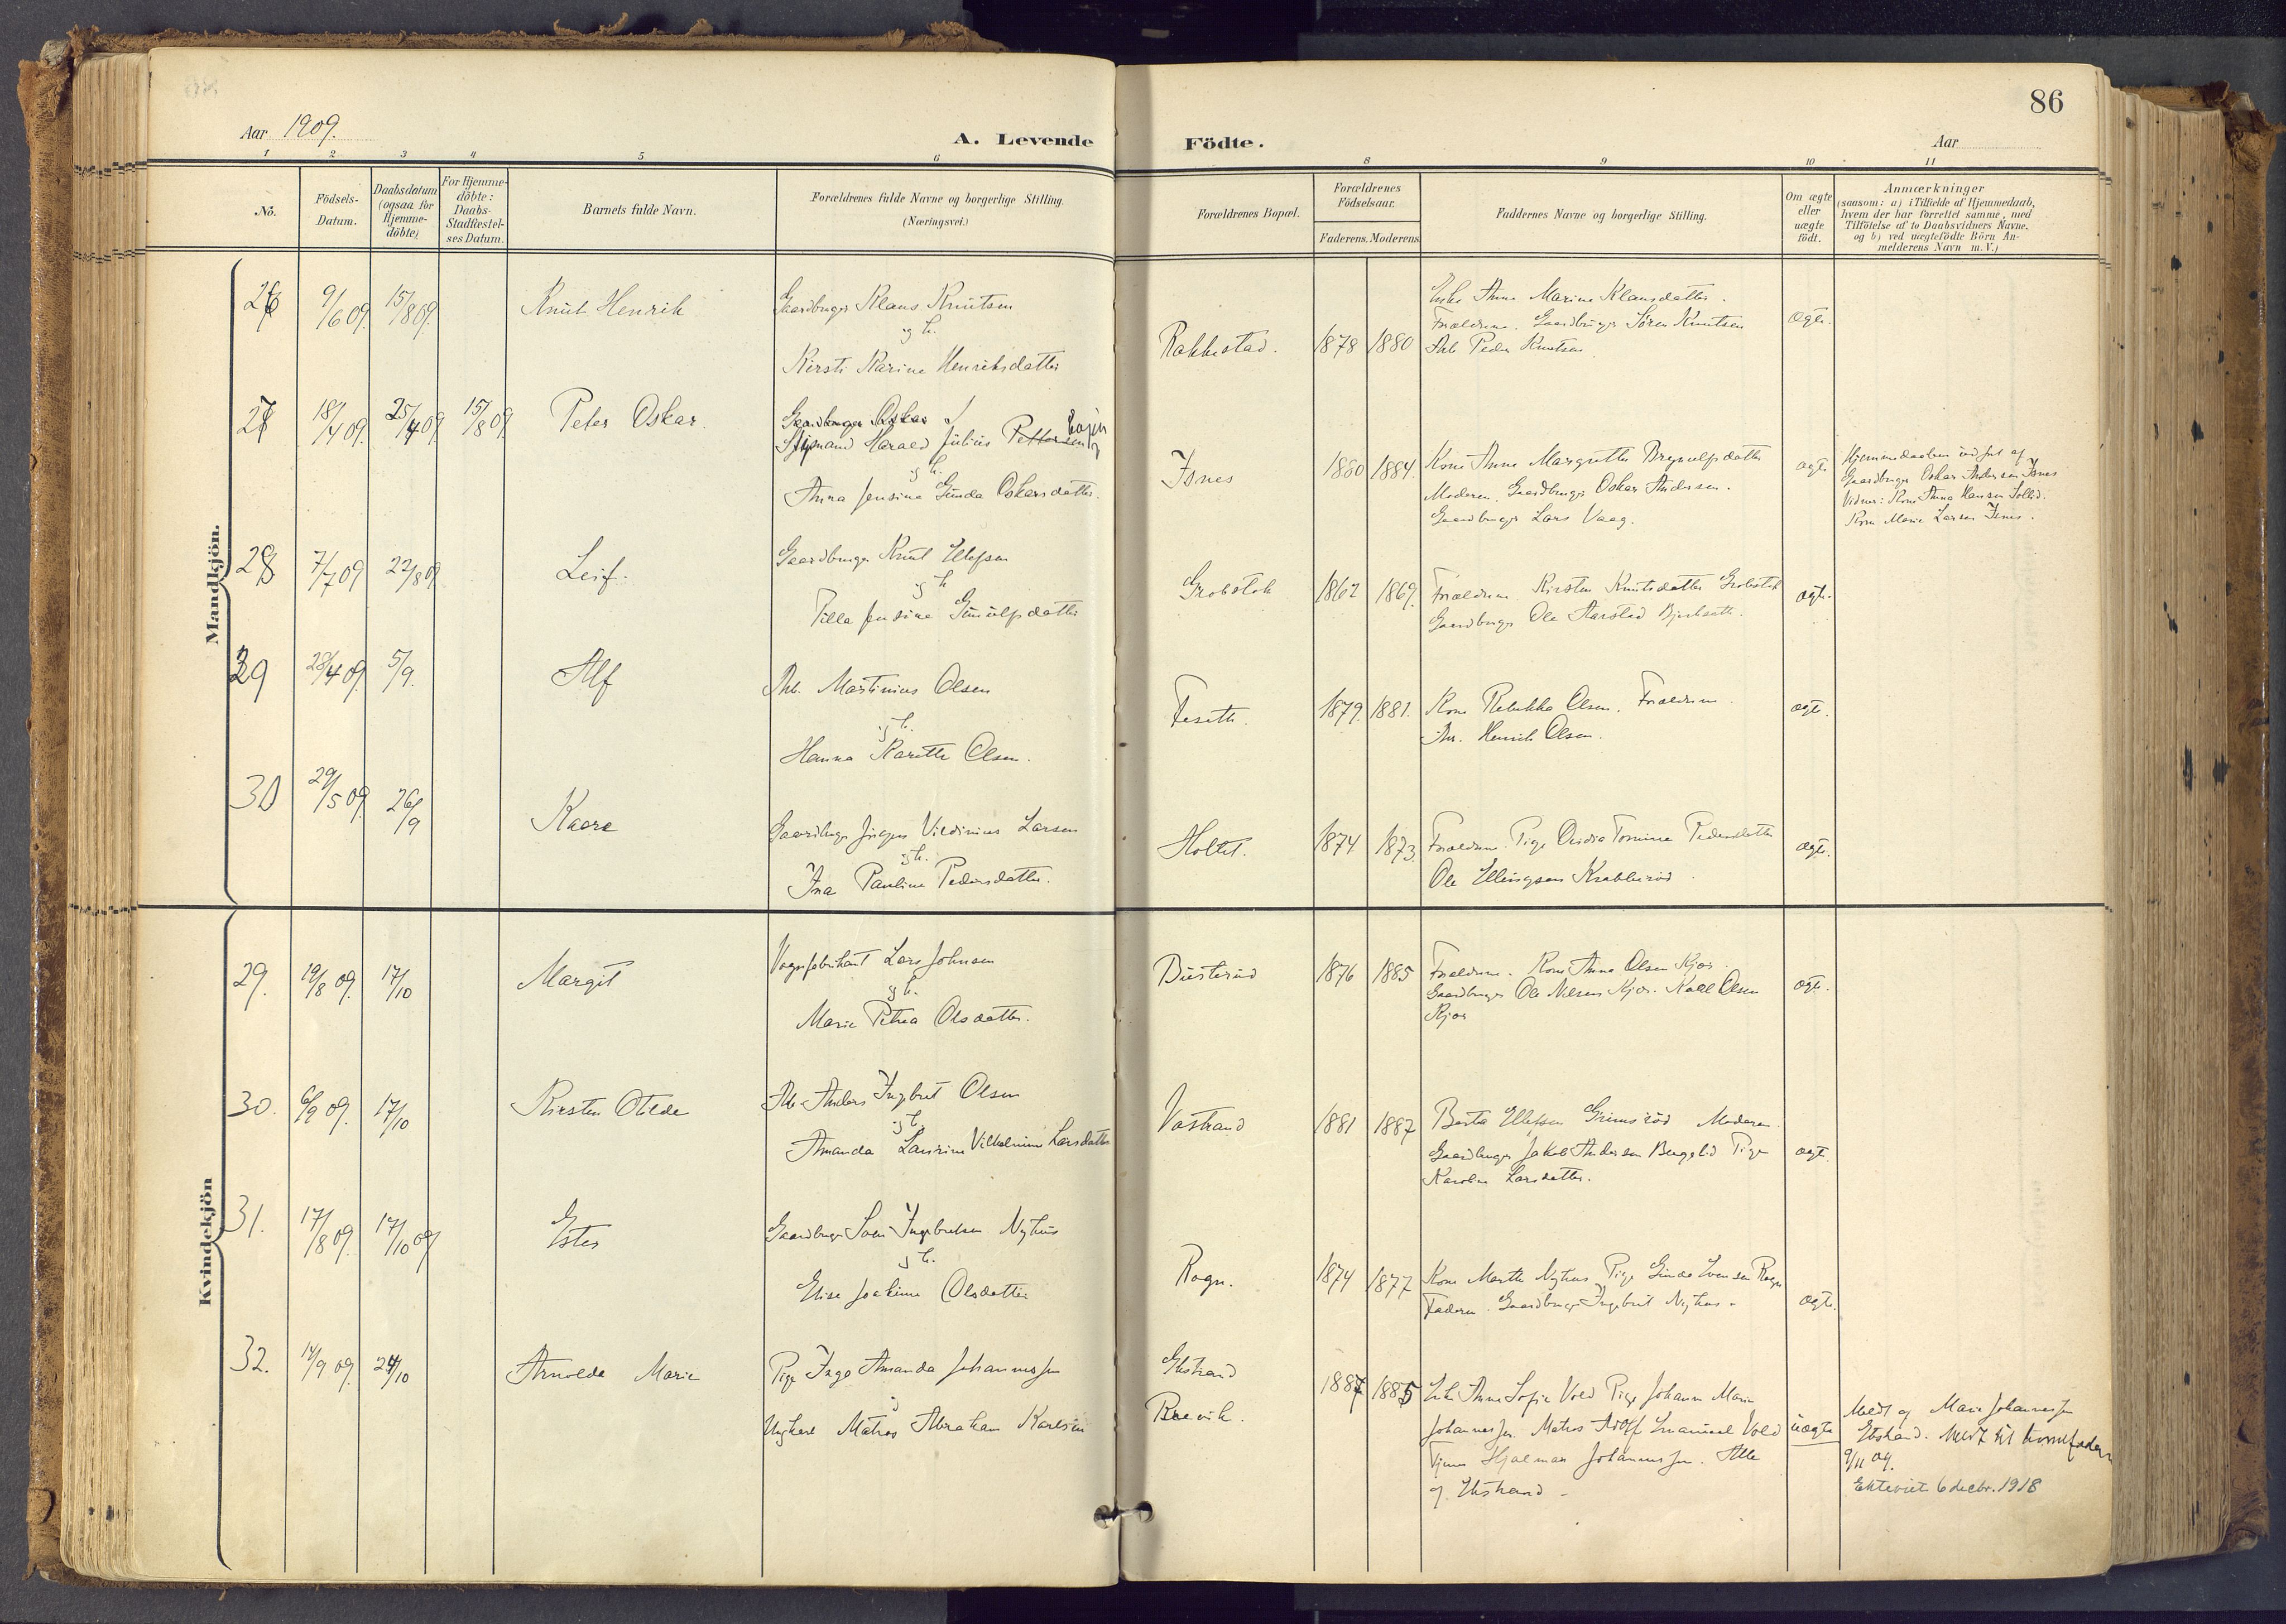 86
Aar 1909.
A. Levende Födte.
Aar
1 2 3 4 5 6 8 9 10 11
No.
Födsels-Datum.
Daabsdatum (ogsaa for Hjemme-döbte)
For Hjemme-döbte: Daabs-Stadfæstel-ses Datum.
Barnets fulde Navn.
Forældrenes fulde Navne og borgerlige Stilling. (Næringsvei.)
Forældrenes Bopæl.
Forældrenes Födselsaar.
Faderens. Moderens.
Faddernes Navne og borgerlige Stilling.
Om ægte eller uægte födt.
Anmærkninger
(saasom: a) i Tilfælde af Hjemmedaab,
hvem der har forrettet samme, med
Tilföielse af to Daabsvidners Navne,
og b) ved uægtefödte Börn An-
melderens Navn m. V.)
Mandkjön.
26 9/6 09. 15/8 09. Knut Henrik
Gaardbruger Klaus Knutsen
og h.
Kirsti Karine Henriksdatter
Rakkestad. 1878 1880
Enke Anne Marine Klausdatter.
Forældrene. Gaardbruger Søren Knutsen
Arb. Peder Knutsen.
ægte.
27 18/4 09. 25/4 09. 15/8 09. Peter Oskar.
Gaardbruger Oskar
Harald Julius Pettersen
og h.
Anna Jensine Gunda Oskarsdatter.
Isnes 1880 1884.
Kone Anne Margrethe Brynulfsdatter
Moderen. Gaardbruger Oskar Andersen.
Gaardbruger Lars Vaag.
ægte
Hjemmedaaben udført af
Gaardbruger Oskar Andersen Isnes
Vidner: Kone Anna Hansen
Kone Marie Larsen Isnes.
28 7/7 09 22/8 09 Leif.
Gaardbruger Knut Ellefsen
og h
Tilla Jensine Gunulfsdatter
Grobstok 1862 1869.
Forældrene Kirsten Knutsdatter Grobstok
Gaardbruger Ole Aarstad
ægte.
29 28/4 09. 5/9. Alf
Arb. Martinius Olsen
og h.
Hanna Karethe Olsen.
1879. 1881.
Kone Rebekka Olsen. Forældrene.
Arb. Henrik Olsen.
ægte.
30 29/5 09. 26/9 Kaare
Gaardbruger Jørgen Larsen
og h.
Ina Pauline Pedersdatter.
Holtet. 1874 1873.
Forældrene. Pige Ovidia Tomine Pedersdatter
Ole Ellingsen Krabberød.
ægte.
Kvindekjön
29. 19/8 09. 17/10 Margit
Vognfabrikant Lars Johnsen
og h.
Marie Petrea Olsdatter.
1876 1885
Forældrene. Kone Anna Olsen Kjær.
Gaardbruger Ole Nilsen Kjær. Karl Olsen
Kjær
ægte.
30. 6/9 09. 17/10 Kirsten Otilde
Arb. Anders Ingbret Olsen
og h.
Amanda Laurine Vilhelmine Larsdatter
1881 1887
Berta Ellefsen Grimsrød Moderen
Gaardbruger Jakob Andersen Pige
Karoline Larsdatter.
ægte.
31. 17/8 09. 17/10 09 Ester
Gaardbruger Ingebretsen Nyhus
og h.
Elise Joakime Olsdatter
Rogn. 1874 1877
Kone Marthe Nyhus Pige Gunda Rogn
Faderen. Gaardbruger Ingebret Nyhus.
ægte.
32. 14/9 09. 24/10 Arnolda Marie
Pige Inga Amanda Johannessen
Ungkarl Matros Abraham Karlsen
Ekstrand
Brevik.
1887 1885
Enke Anne Sofie Vold Pige Johanne Marie
Johannessen. Matros Adolf Emanuel Vold
Hjalmar Johannessen. Alle
af Ekstrand.
uægte
Meldt af Marie Johannessen
Ekstrand. Meldt til
9/11 09.
Ekteviet 6 decbr. 1918